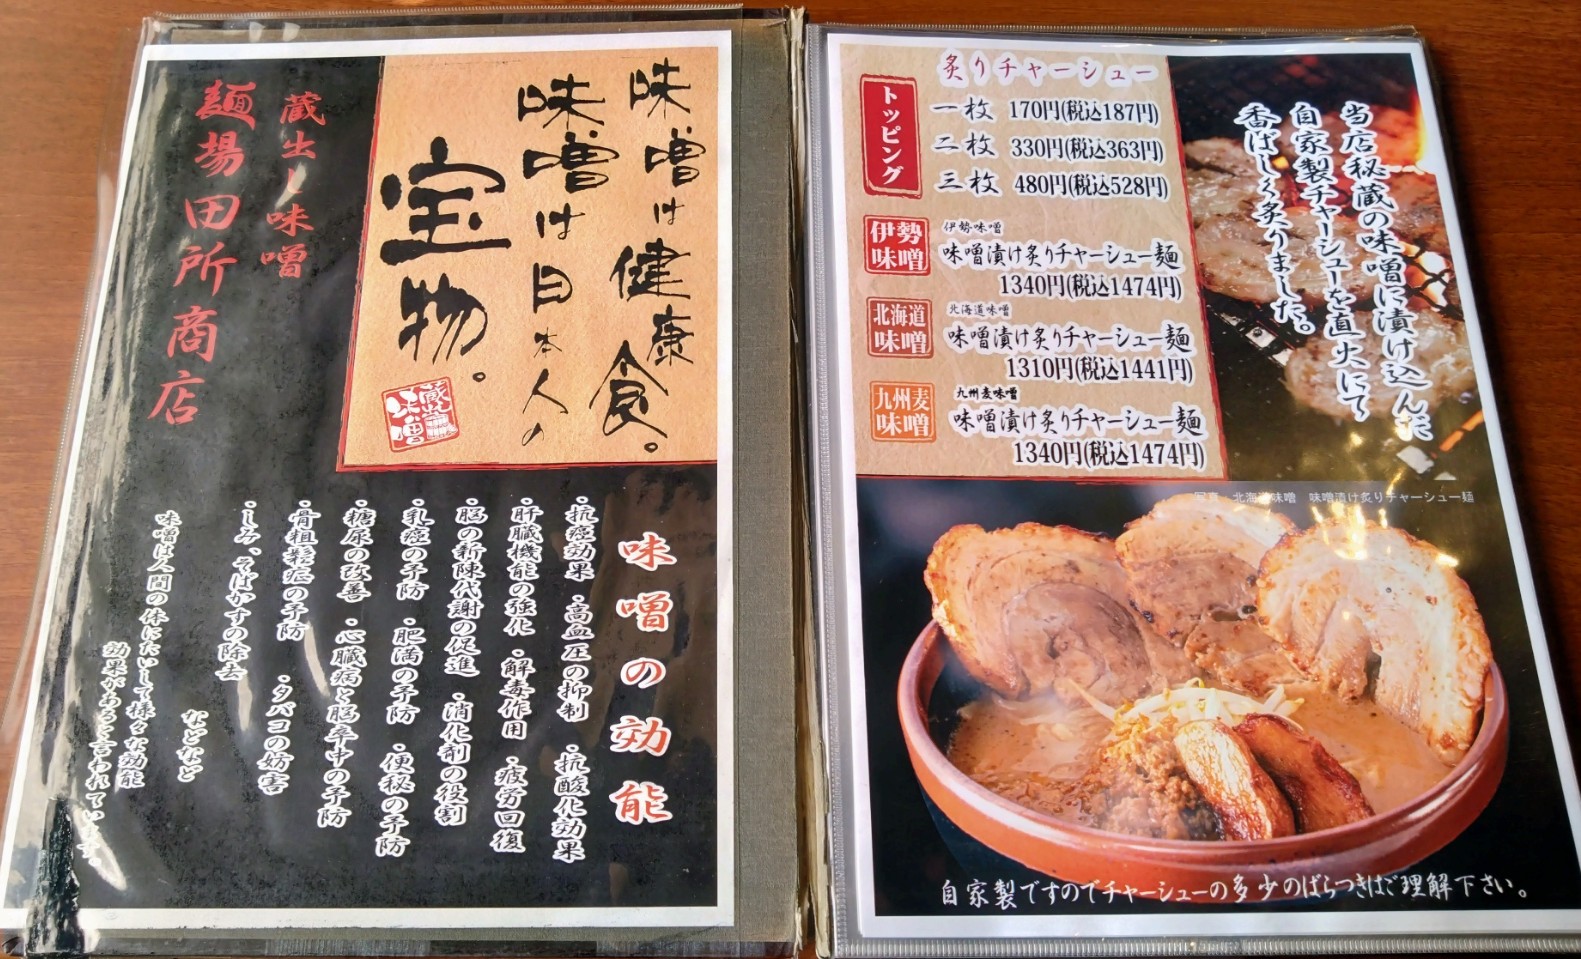 味噌は健康食。
味噌は日本人の
宝物。
蔵出し味噌
蔵出し味噌
麺場田所商店
味噌の効能
・抗癌効果 ・高血圧の抑制 ・抗酸化効果
・肝臓機能の強化 ・解毒作用 ・疲労回復
・脳の新陳代謝の促進 ・消化剤の役割
・乳癌の予防 ・肥満の予防 ・便秘の予防
・糖尿の改善 ・心臓病と脳卒中の予防
・骨粗鬆症の予防 ・タバコの妨害
・しみ、そばかすの除去
などなど
味噌は人間の体にたいして様々な効能
効果があると言われています。
当店秘蔵の味噌に漬け込んだ
自家製チャーシューを直火にて
香ばしく炙りました。
トッピング
炙りチャーシュー
一枚 170円(税込187円)
二枚 330円(税込363円)
三枚 480円(税込528円)
伊勢味噌
伊勢味噌
味噌漬け炙りチャーシュー麺
1340円(税込1474円)
北海道味噌
北海道味噌
味噌漬け炙りチャーシュー麺
1310円(税込1441円)
九州麦味噌
九州麦味噌
味噌漬け炙りチャーシュー麺
1340円(税込1474円)
写真 北海道味噌 味噌漬け炙りチャーシュー麺
自家製ですのでチャーシューの多少のばらつきはご理解下さい。